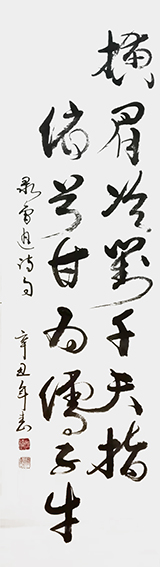 横眉冷對千夫指
俯首甘为孺子牛
录鲁迅诗句
辛丑年春